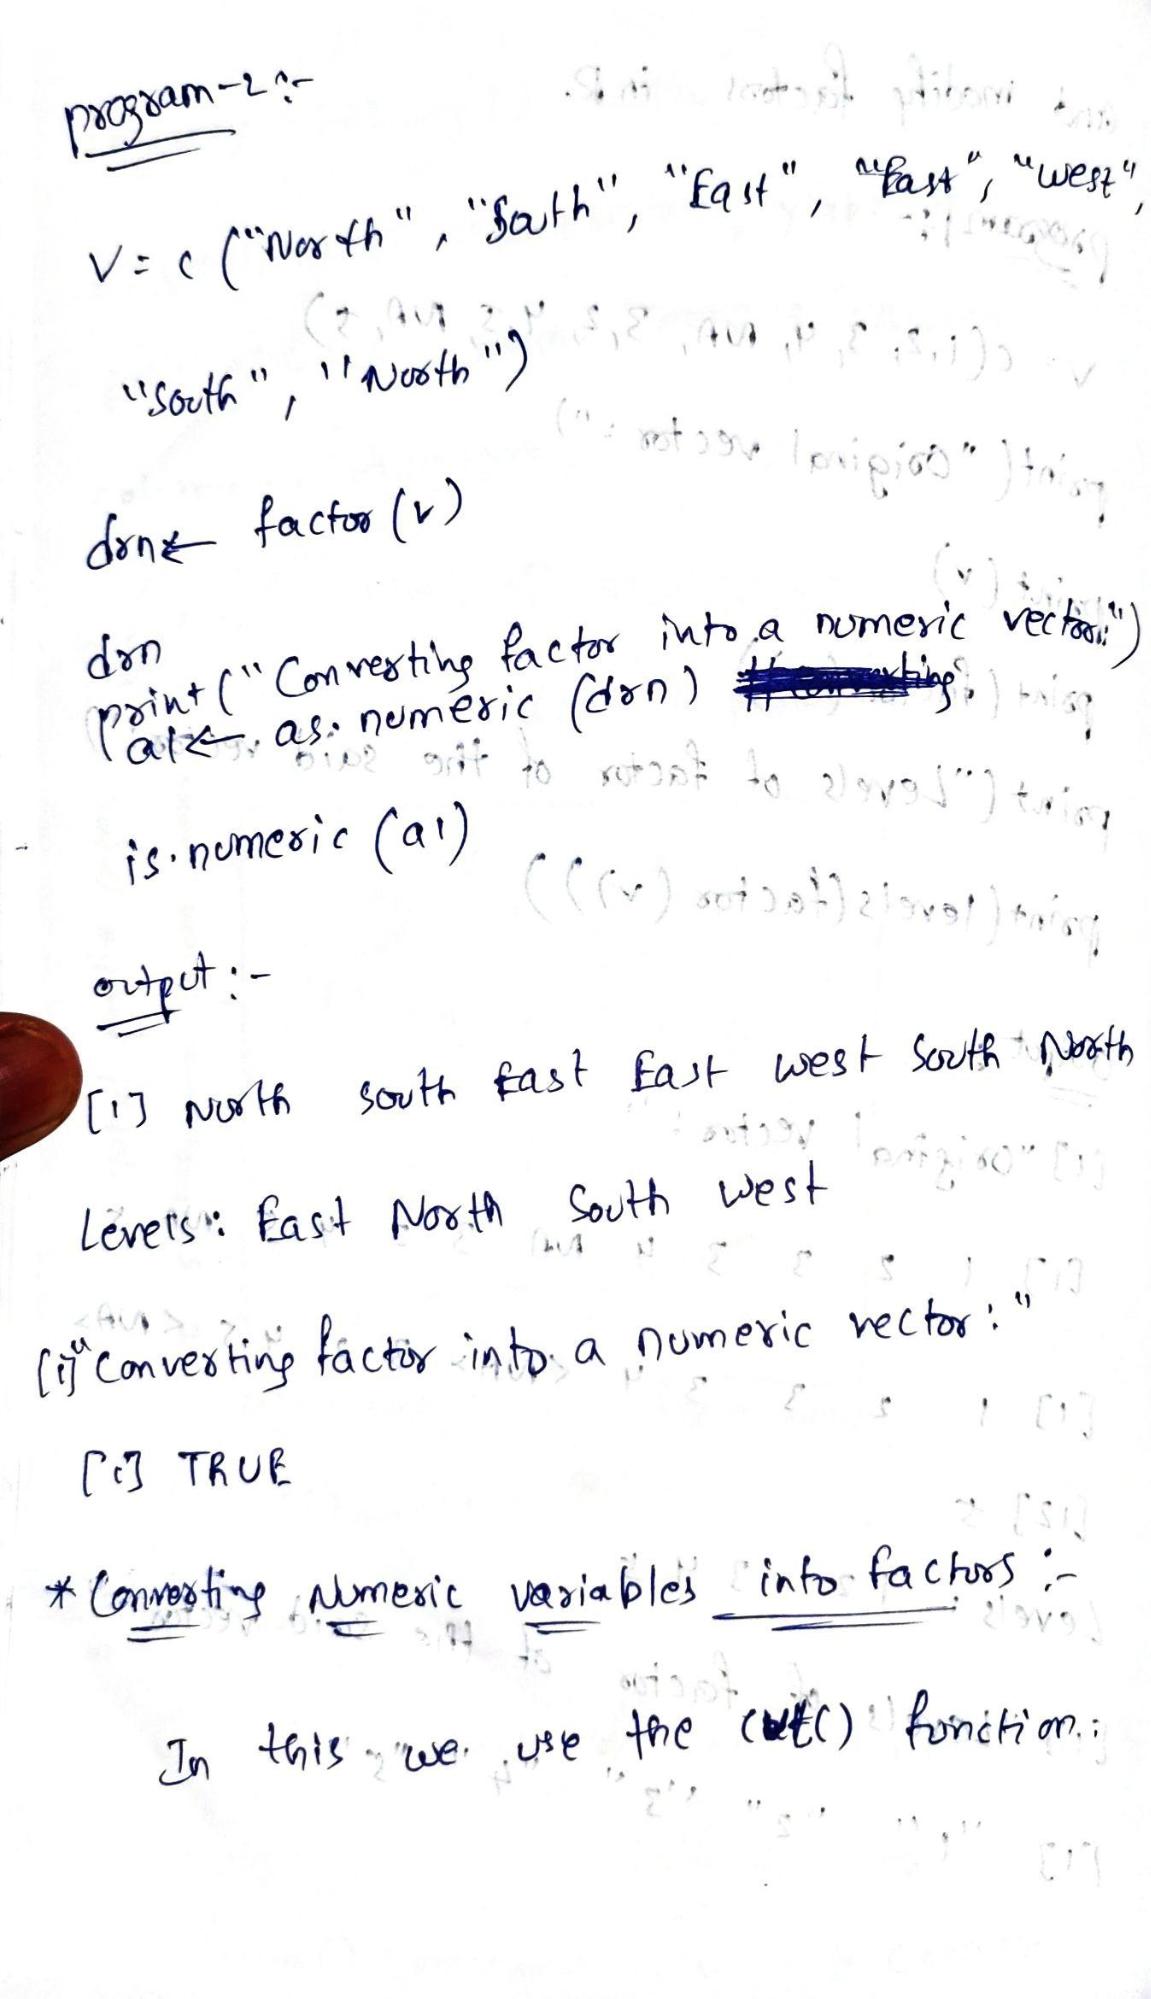 program-2 :-
V = c ("North", "South", "East", "East", "West",
"South", "North")
drn ← factor (v)
drn
print ("Converting factor into a numeric vector:")
a1 ← as.numeric (drn)
is.numeric (a1)
output :-
[1] North South East East West South North
Levels: East North South West
[1] "Converting factor into a numeric vector:"
[1] TRUE
* Converting Numeric variables into factors :-
In this we use the cut() function.